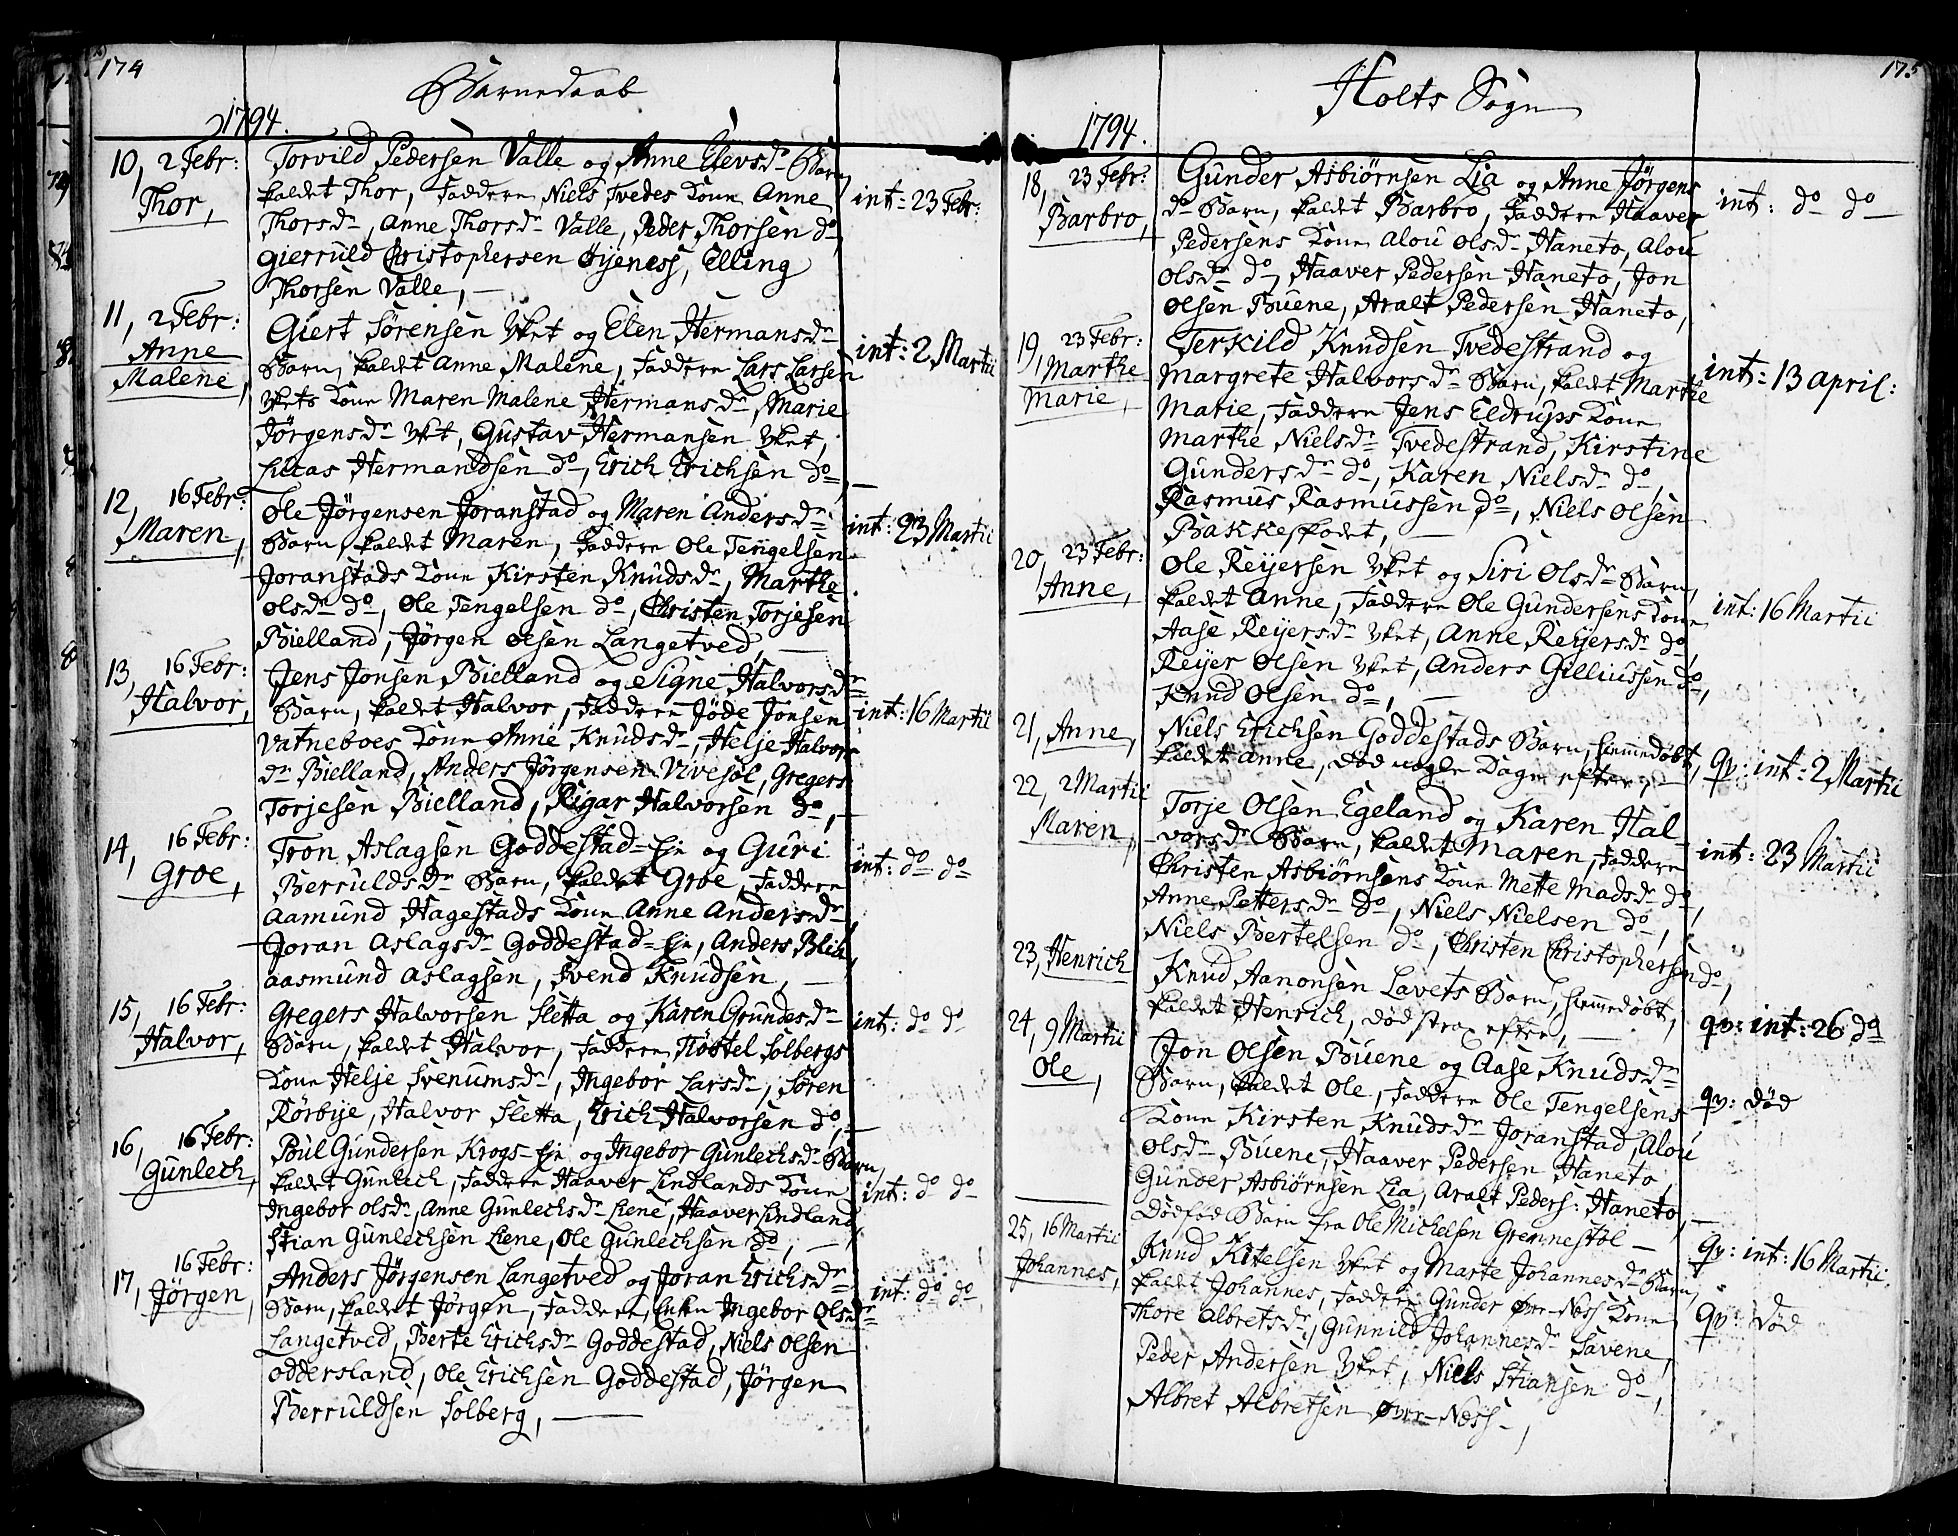 174
Barnedaab
1794.
10, 2 Febr:
Thor,
Torvild Pedersen Valle og Anne Elevsdr Barn
kaldet Thor, Faddere Niels Tvedes Kone Anne
Thorsdr, Anne Thorsdr Valle, Peder Thorsen do,
Gierruld Christophersen Öijeness, Elling
Thorsen Valle, —
int: 23 Febr:
11, 2 Febr:
Anne
Malene,
Giert Sörensen Vket og Elen Hermansdr
Barn, kaldet Anne Malene, Faddere Lars Larsen
Vkets Kone Maren Malene Hermansdr, Marie
Jörgensdr Vket, Gustav Hermansen Vket,
Lucas Hermandsen do, Erich Erichsen do, —
int: 2 Martii
12, 16 Febr:
Maren,
Ole Jörgensen Joranstad og Maren Andersdr
Barn, kaldet Maren, Faddere Ole Tengelsen
Joranstads Kone Kirsten Knudsdr, Marthe
Olsdr do, Ole Tengelsen do, Christen Torjesen
Bielland, Jörgen Olsen Langetved, —
int: 23 Martii
13, 16 Febr:
Halvor,
Jens Jonsen Bielland og Signe Halvorsdr
Barn, kaldet Halvor, Faddere Jöde Jonsen
Vatneboes Kone Anne Knudsdr, Helje Halvors
dr Bielland, Anders Jörgensen Vivesöl, Gregers
Torjesen Bielland, Rigar Halvorsen do, —
int: 16 Martii
14, 16 Febr:
Groe,
Tron Aslagsen Goddestad-Eje og Guri
Berruldsdr Barn, kaldet Groe, Faddere
Aamund Hagestads Kone Anne Andersdr
Joran Aslagsdr Goddestad-Eje, Anders Blich,
Aasmund Aslagsen, Svend Knudsen, —
int: do do
15, 16 Febr:
Halvor,
Gregers Halvorsen Sletta og Karen Grundesdr
Barn, kaldet Halvor, Faddere Nöttel Solbergs
Kone Helje Svenumsdr, Ingebor Larsdr, Sören
Rörbye, Halvor Sletta, Erich Halvorsen do, —
int: do do
16, 16 Febr:
Gunlech,
Poul Gundersen Krogs-Eje og Ingebor Gunlechsdr Barn,
kaldet Gunlech, Faddere Haaver Lindlands Kone
Ingebor Olsdr, Anne Gunlechsdr Liene, Haaver Lindland
Stian Gunlechsen Liene, Ole Gunlechsen do, —
int: do do
17, 16 Febr:
Jörgen,
Anders Jörgensen Langetved og Joran Erichsdr
Barn, kaldet Jörgen, Faddere, Enken Ingebor Olsdr
Langetved, Berte Erichsdr Goddestad, Niels Olsen
Oddersland, Ole Erichsen Goddestad, Jörgen
Berruldsen Solberg, —
int: do do
175
Holts Sogn
1794.
18, 23 Febr:
Barbro,
Gunder Asbiörnsen Lia og Anne Jörgens
dr Barn, kaldet Barbro, Faddere Haaver
Pedersens Kone Alou Olsdr Haneto, Alou
Olsdr do, Haaver Pedersen Haneto, Jon
Olsen Buene, Aralt Pedersen Haneto,
int: do do
19, 23 Febr:
Marthe
Marie,
Terkild Knudsen Tvedestrand og
Margrete Halvorsdr Barn, kaldet Marthe
Marie, Faddere Jens Eldrups Kone
Marthe Nielsdr Tvedestrand, Kirstine
Gundersdr do, Karen Nielsdr do,
Rasmus Rasmussen do, Niels Olsen
Bakkeskodet, —
int: 13 April:
20, 23 Febr:
Anne,
Ole Reijersen Vket og Siri Olsdr Barn,
kaldet Anne, Faddere Ole Gundersens Kone
Aase Reijersdr Vket, Anne Reijersdr do,
Reijer Olsen Vket, Anders Gilliussen do,
Knud Olsen do, —
int: 16 Martii
21, Anne,
Niels Erichsen Goddestads Barn, hiemmedöbt,
kaldet Anne, död nogle Dage efter, —
qv: int: 2 Martii
22, 2 Martii
Maren,
Torje Olsen Egeland og Karen Hal-
vorsdr Barn, kaldet Maren, Faddere
Christen Asbiörnsens Kone Mette Madsdr do,
Anne Pettersdr do, Niels Nielsen do,
Niels Bertelsen do, Christen Christophersen do,
int: 23 Martii
23, Henrich
Knud Aanonsen Lavets Barn, hiemmedöbt,
kaldet Henrich, död strax efter, —
qv: int: 26 do
24, 9 Martii
Ole,
Jon Olsen Buene og Aase Knudsdr
Barn, kaldet Ole, Faddere Ole Tengelsens
Kone Kirsten Knudsdr Joranstad, Alou
Olsdr Buene, Haaver Pedersen Haneto,
Gunder Asbiörnsen Lia, Aralt Peders: Haneto, —
qv: död
Dödföd Barn fra Ole Michelsen Grennestöl —
qv: int: 16 Martii
25, 16 Martii
Johannes,
Knud Kitelsen Vket og Marte Johannesdr Barn,
kaldet Johannes, Faddere Gunder Över-Ness Kone
Thore Albretsdr, Gunnild Johannesdr Savene,
Peder Andersen Vket, Niels Stiansen do,
Albret Albretsen Över-Ness —,
qv: död